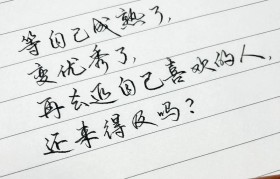 等自己成熟了,
变优秀了,
再去追自己喜欢的人,
还来得及吗?